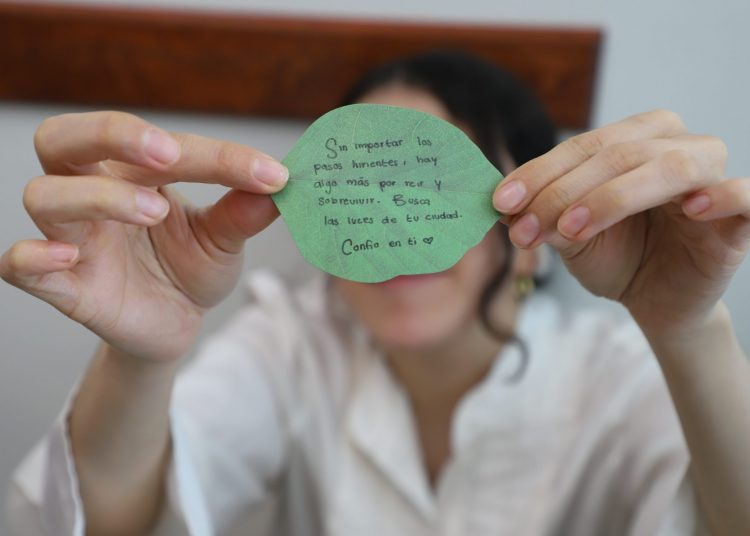 Sin importar los
pasos hirientes, hay
algo más por reir y
sobrevivir. Busca
las luces de tu ciudad.
Confia en ti